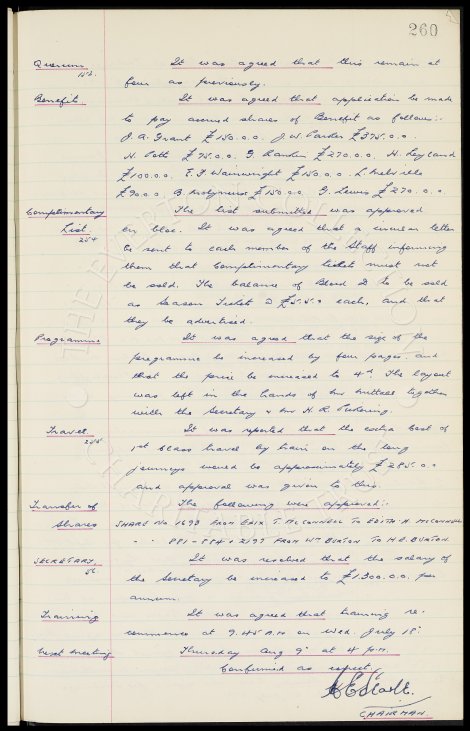 260
Quorum It was agreed that this remain at
four as previously.
Benefit. It was agreed that application be made
to pay accrued shares of Benefit as follows:-
J.A. Grant £150.0.0. J.W. Parker £375.0.0.
H. Potts £75.0.0. G. Rankin £270.0.0. H. Leyland
£100.0.0. E.G. Wainwright £150.0.0. L. Melville
£90.0.0. B. Molyneux £150.0.0. G. Lewis £270.0.0
Complimentary The list submitted was approved
List. en bloc. It was agreed that a circular letter
254 be sent to each member of the Staff informing
them that Complimentary tickets must not
be sold. The balance of Block D to be sold
as Season Tickets @ £5.5.0 each, and that
they be advertised.
Programme It was agreed that the size of the
programme be increased by four pages. and
that the price be increased to 4d. The layout
was left in the hands of
together
with the Secretary & Mr H. R. Pickering.
Travel. It was reported that the extra cost of
1st Class travel by train on the long
journeys would be approximately £285.0.0
and approval was given to this.
Transfer of The following were approved:-
Shares SHARE No 1698 FROM ERIK T. McCONNELL TO EDITH M. McCONNELL
" " 881-884 & 2197 FROM WM BURTON TO H.E. BURTON.
SECRETARY. It was resolved that the salary of
the Secretary be increased to £1,300.0.0. per
annum.
Training It was agreed that training re-
commence at 9.45 A.M on Wed. July 18th
Next Meeting Thursday Aug 9th at 4 p.m.
Confirmed as correct.
CHAIRMAN.